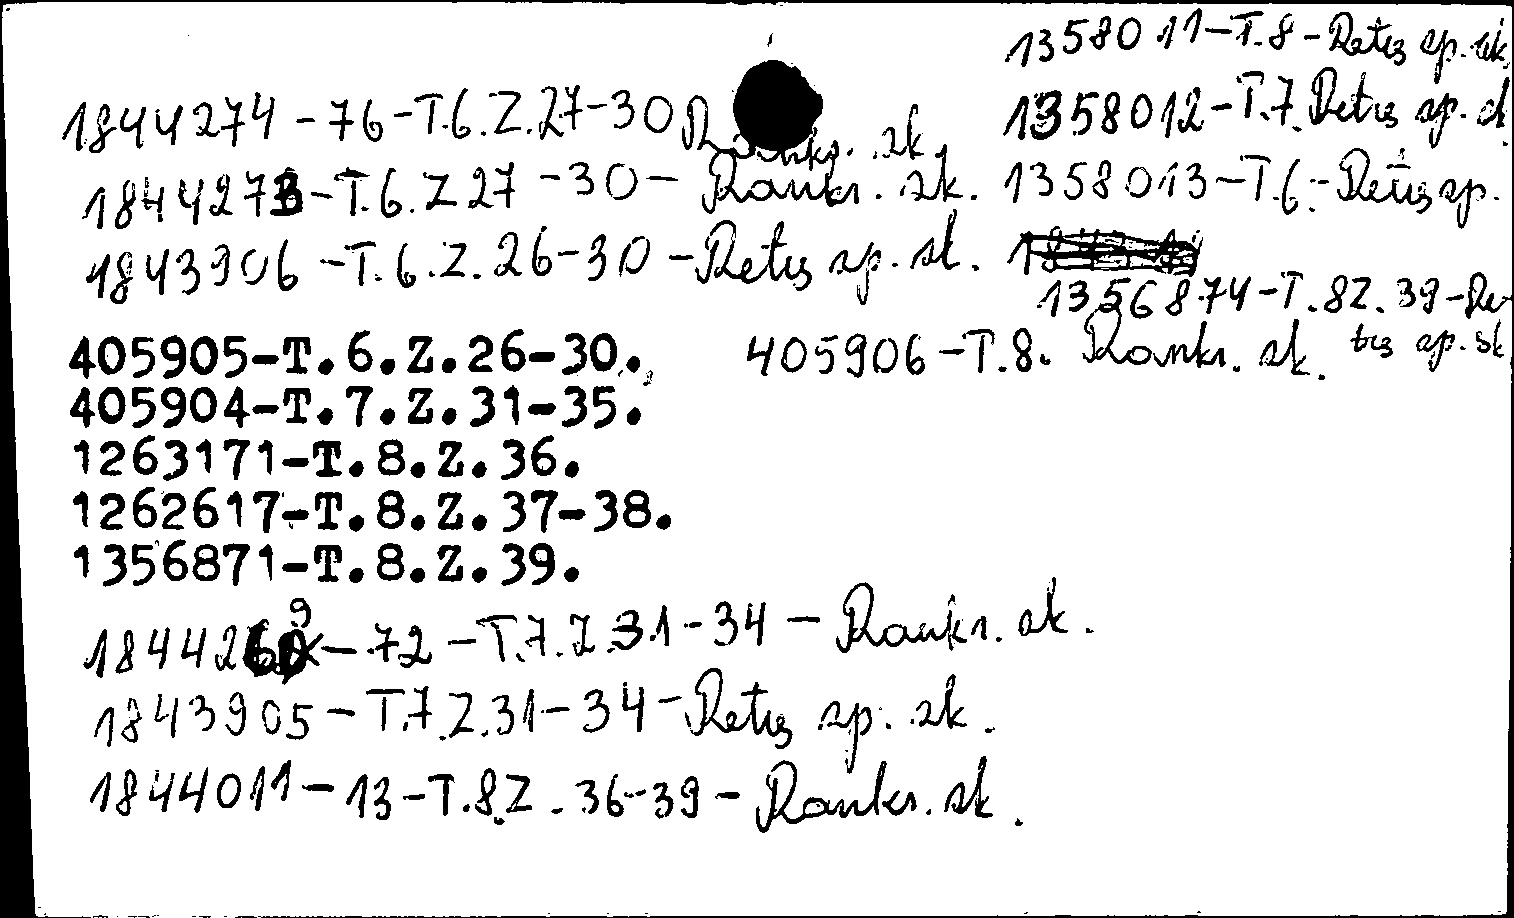 1844274-76-T.6.Z.27-30 Rankr. sk.
1844273-T.6.Z27-30- Rankr. sk.
1843906-T.6.Z.26-30-Retų sp. sk.
405905-T.6.Z.26-30.
405904-T.7.Z.31-35.
1263171-T.8.Z.36.
1262617-T.8.Z.37-38.
1356871-T.8.Z.39.
1844269-72-T.7.Z.31-34-Rankr. sk.
1843905-T.7.Z.31-34-Retų sp. sk.
1844011-13-T.8.Z.36-39-Rankr. sk.
1358011-T.8-Retų sp. sk.
1358012-T.7.Retų sp. sk.
1358013-T.6.-Retų sp.
1356874-T.8Z.39-Re-
tų sp. sk
405906-T.8. Rankr. sk.